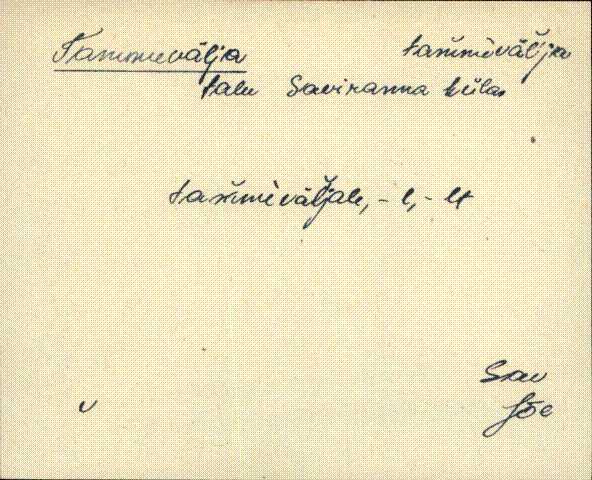 Tammevälja tam̆mèväl̆ja
talu Saviranna külas
tam̆mèväl̆jale, -l, -lt
Sav
Jõe
v